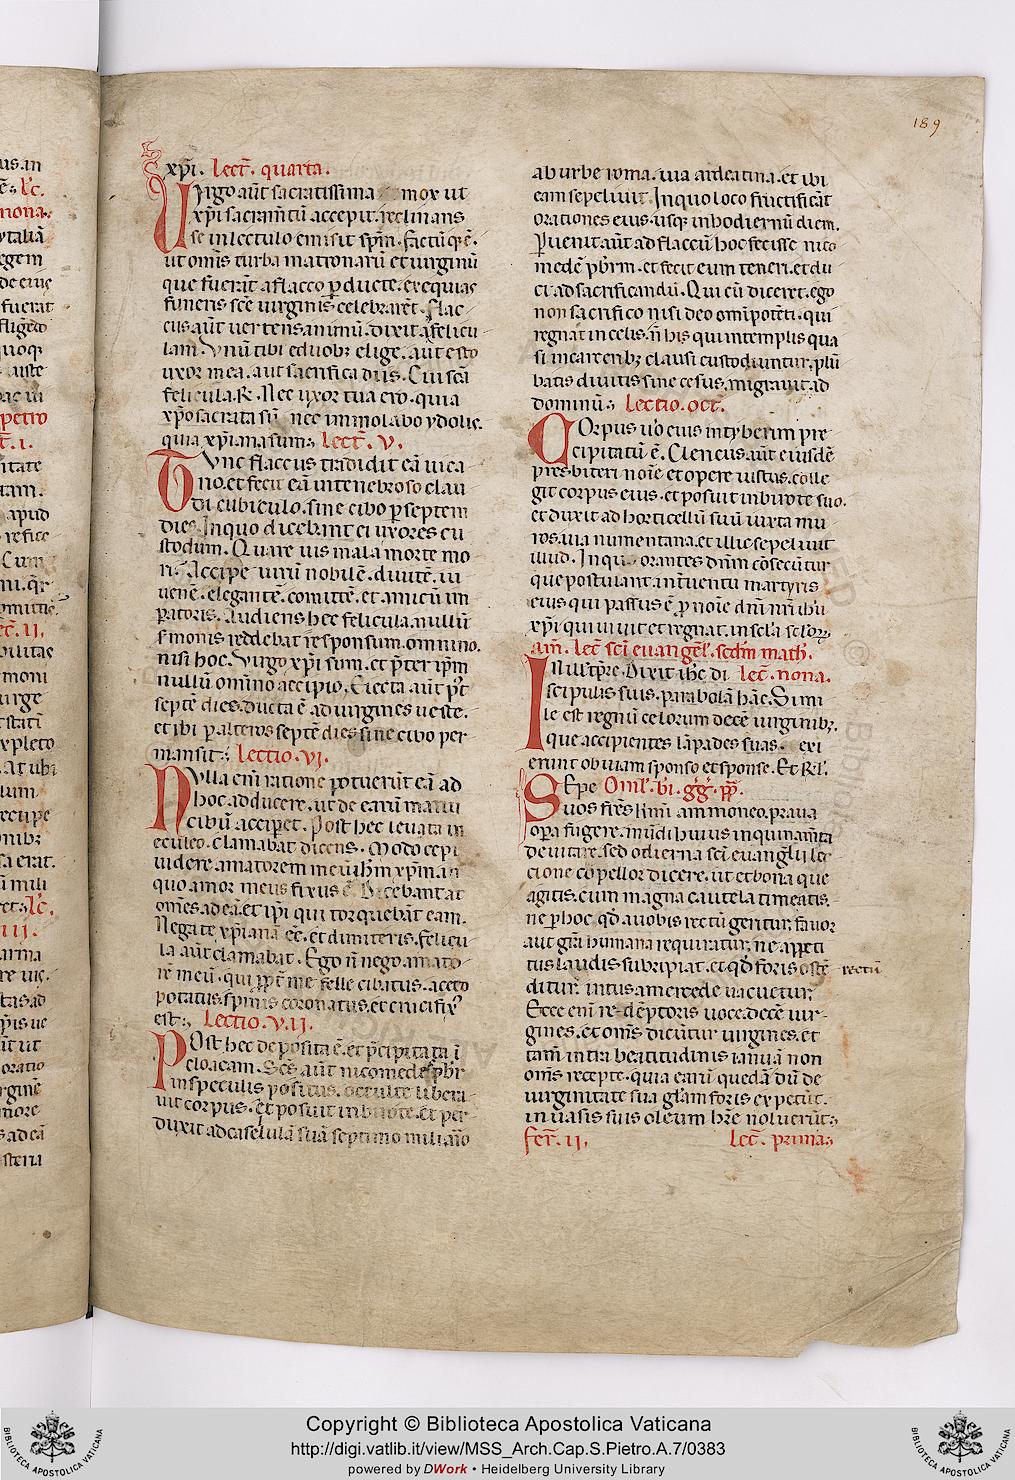 189
xp̄i. Lect̄. quarta.
Virgo aūt sacratissima mox ut
xp̄i sacram̄tū accepit. reclinans
se in lectulo emisit sp̄m. factūq; ē.
ut om̄is turba matronarū et virginū
que fuerāt a flacco p̄ducte. exequias
funeris sc̄e virginis celebrarēt. Flac
cus aūt vertens animū. dixit ad felicu
lam. Vnū tibi e duob; elige. aut esto
uxor mea. aut sacrifica diis. Cui sc̄a
felicula. R̄. Nec uxor tua ero. quia
xp̄o sacrata sū. nec immolabo ydolis.
quia xp̄iana sum; Lect̄. V.
Tvnc flaccus tradidit eā vica
rio. et fecit eā in tenebroso clau
di cubiculo. sine cibo p septem
dies. In quo dicebant ei uxores cu
stodum. Quare vis mala morte mo
ri. Accipe virū nobilē. divitē. iu
venē. elegantē. comitē. et amicū im
patoris. Audiens hec felicula. nullū
s̄monis reddebat responsum. omnino.
nisi hoc. Virgo xp̄i sum. et p̄ter ip̄m
nullū om̄ino accipio. Eiecta aūt p̄t
septē dies. ducta ē ad virgines veste.
et ibi p alteros septē dies sine cibo per
mansit; Lectio. VI.
Nvlla enī ratione potuerūt eā ad
hoc adducere. ut de earū manu
cibū accip̄et. Post hec levata in
eculeo. clamabat dicens. Modo cepi
videre amatorem meū ih̄m xp̄m. in
quo amor meus fixus ē. Dicebant aūt
om̄es ad eā. et ip̄i qui torquebāt eam.
Nega te xp̄ianā eē. et dimitteris. felicu
la aūt clamabat. Ego n̄ nego amato
rē meū. qui pp̄t me felle cibatus. aceto
potatus. spinis coronatus. et crucifix9
est; Lectio. VII.
Post hec deposita ē. et p̄cipitata ī
cloacam. Sc̄s aūt nicomedes pb̄r
in speculis positus. occulte libera
vit corpus. et posuit in birote. et per
duxit ad caselulā suā septimo miliario
ab urbe roma. via ardeatina. et ibi
eam sepelivit. In quo loco fructificāt
orationes eius. usq; in hodiernū diem.
Pvenit aūt ad flaccū hoc fecisse nico
medē pb̄rm. et fecit eum teneri. et du
ci ad sacrificandū. Qui cū diceret. ego
non sacrifico nisi deo om̄ipotēti. qui
regnat in celis. n̄ his qui in templis qua
si in carcerib; clausi custodiuntur. plū
batis diutis sine cesus. migravit ad
dominū; Lectio. oct̄.
Corpus v̄o eius in tyberim pre
cipitatū ē. Clericus aūt eiusdē
presbiteri noīe et opere iustus. colle
git corpus eius. et posuit in birote suo.
et duxit ad horticellū suū iuxta mu
ros. via numentana. et illic sepelivit
illud. In quo orantes dn̄m cōsecūtur
que postulant. int̄ventu martyris
eius qui passus ē. p noīe dn̄i nr̄i ih̄u
xp̄i qui vivit et regnat. in sc̄la sc̄lor;
am̄. Lec̄ sc̄i evangel'. scd̄m math̄.
In ill' tp̄re. Dixit ih̄s di Lect̄. nona.
scipulis suis. parabolā hāc. Simi
le est regnū celorum decē virginib;.
que accipientes lāpades suas. exi
erunt obviam sponso et sponse. Et Rl'.
Sepe Oml'. bī. gg̅. pp̄.
vos fr̄es km̄i ammoneo. prava
op̄a fugere. mūdi huius inquinam̄ta
devitare. sed odierna sc̄i evanḡlii lec
cione cōpellor dicere. ut et bona que
agitis. cum magna cautela timeatis.
ne p hoc. qd̄ a vobis rectū geritur. favor
aut gr̄a humana requiratur. ne appeti
tus laudis subripiat. et qd̄ foris ostē
rectū
ditur. intus a mercede vacuetur;
Ecce enī redēptoris voce. decē vir
gines. et om̄s dicūtur virgines. et
tam̄ intra beatitudinis ianuā non
om̄s recepte. quia earū quedā dū de
virginitate sua gl̄am foris expetūt.
in vasis suis oleum hr̄e noluerūt;
Fer̄. ii. Lec̄. prima;
Copyright © Biblioteca Apostolica Vaticana
http://digi.vatlib.it/view/MSS_Arch.Cap.S.Pietro.A.7/0383
powered by DWork • Heidelberg University Library